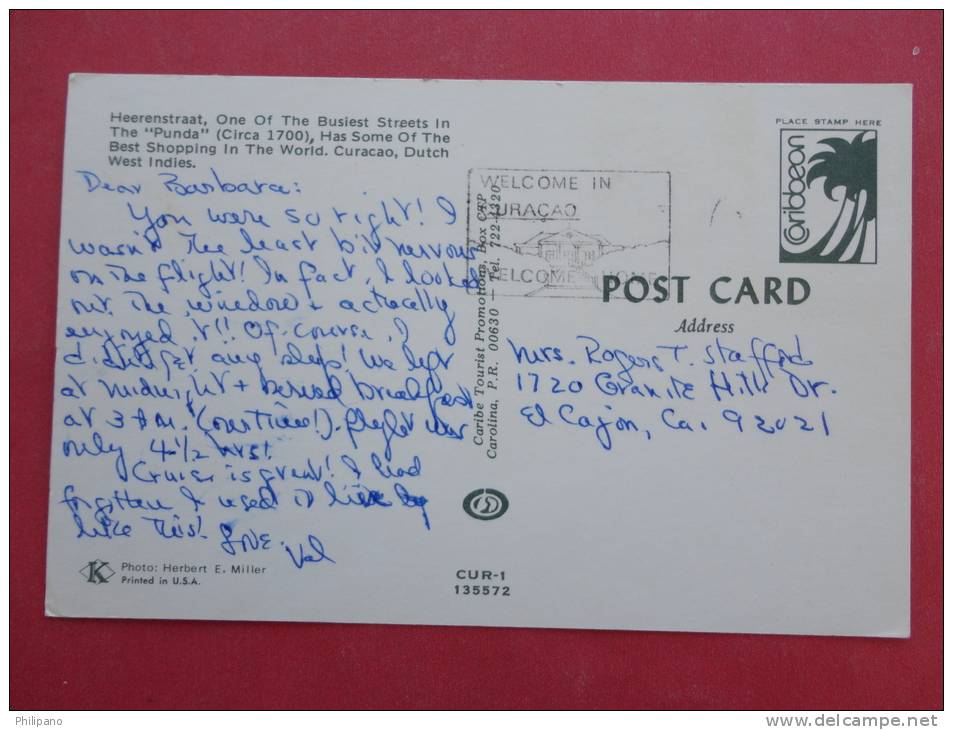 Heerenstraat, One Of The Busiest Streets In
The "Punda" (Circa 1700), Has Some Of The
Best Shopping In The World. Curacao, Dutch
West Indies.
Dear Barbara:
You were so right! I
wasn't the least bit nervous
on the flight! In fact, I looked
out the window + actually
enjoyed it!! Of course, I
didn't get any sleep! We left
at midnight + served breakfast
at 3 AM. (our time!). flight was
only 4½ hrs!
Cruise is great! I had
forgotten I used to live
like this! Love.
Val
Photo: Herbert E. Miller
Printed in U.S.A.
Caribe Tourist Promotions, Box CTP
Carolina, P.R. 00630 — Tel. 722-4320
CUR-1
135572
WELCOME IN
CURAÇAO
WELCOME HOME
PLACE STAMP HERE
Caribbean
POST CARD
Address
Mrs. Rogers T. Stafford
1720 Granite Hills Dr.
El Cajon, Ca. 92021
Philipano
www.delcampe.net